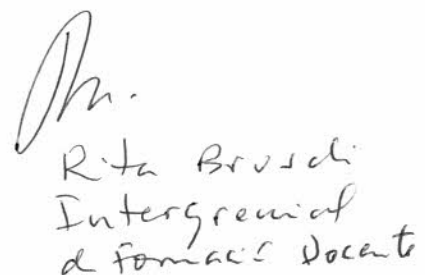 Rita Bruschi
Intergremial
d Formació Docente